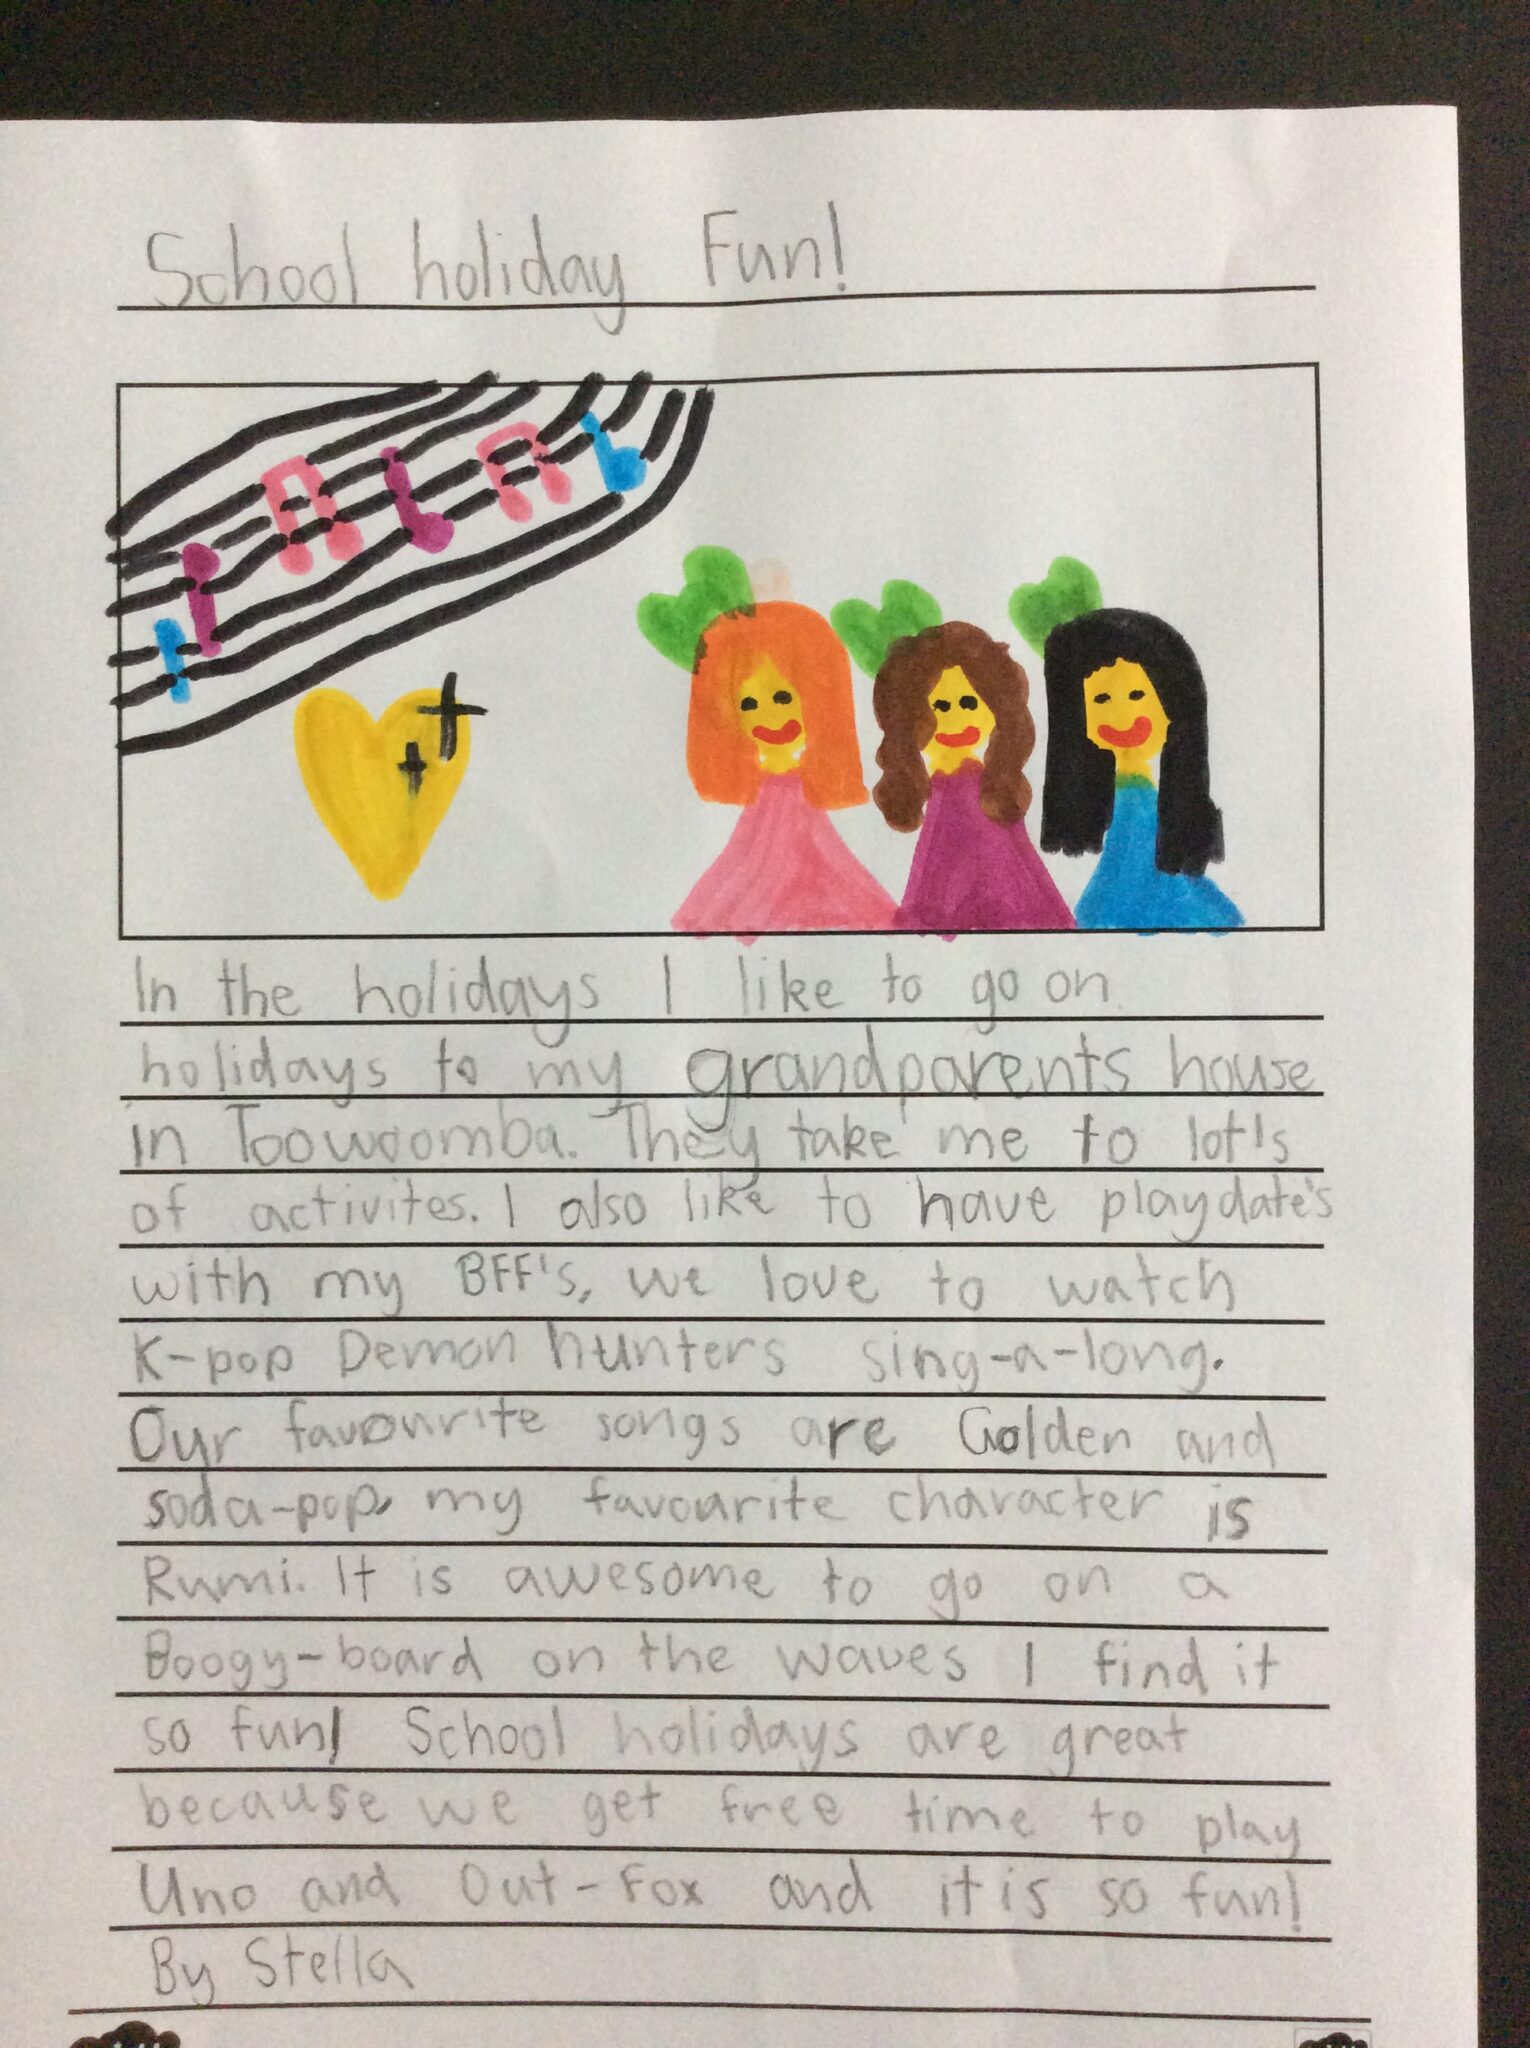 School holiday Fun!
In the holidays I like to go on
holidays to my grandparents house
in Toowoomba. They take me to lot's
of activites. I also like to have playdate's
with my BFF's, we love to watch
K-pop Demon hunters sing-a-long.
Our favourite songs are Golden and
soda-pop, my favourite character is
Rumi. It is awesome to go on a
Boogy-board on the waves I find it
so fun! School holidays are great
because we get free time to play
Uno and Out-Fox and it is so fun!
By Stella